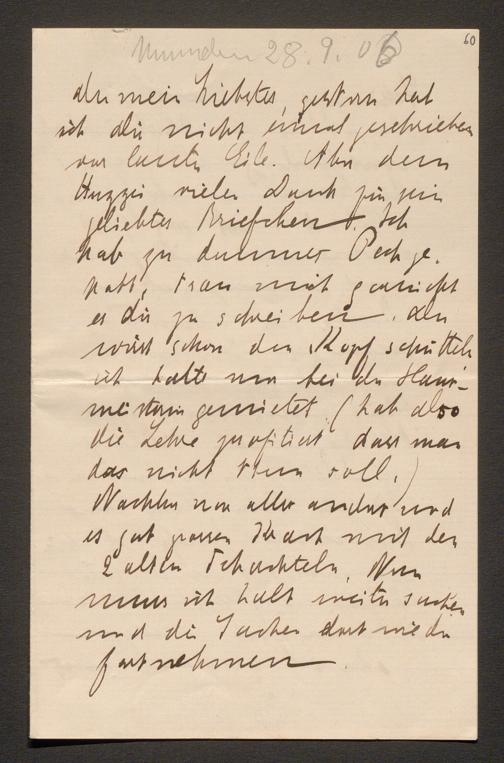 60
München 28.9.06
du mein Liebstes, gestern hab
ich dir nicht einmal geschrieben
vor lauter Eile. Aber dem
vielen Dank für sein
geliebtes Briefchen. Ich
hab zu dummes Pech ge-
habt, trau mich garnicht
es dir zu schreiben. du
wirst schon den Kopf schütteln
ich hatte nur bei der Haus-
meisterin gemietet (hab also
die Lehre profitiert dass man
das nicht thun soll.)
Nachher war alles anders und
es gab grossen Krach mit den
2 alten Schachteln. Nun
muss ich halt weiter suchen
und die Sachen dort wieder
fortnehmen.